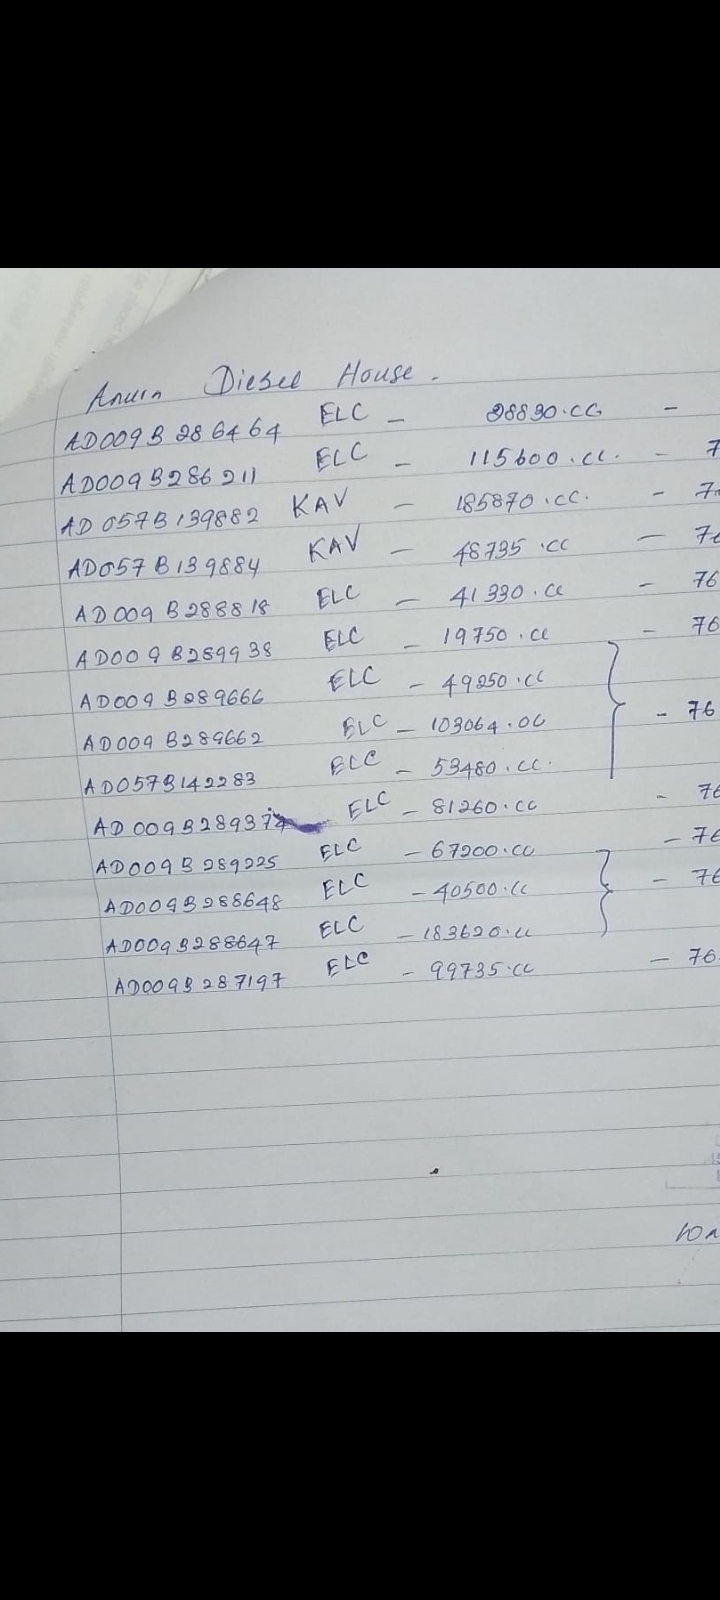 Anura Diesel House.
AD009B286464 ELC - 28830.CC -
AD009B286211 ELC - 115600.CC. - 7
AD057B139882 KAV - 185870.CC. - 7
AD057B139884 KAV - 48735.CC - 76
AD009B288818 ELC - 41330.CC - 76
AD009B289938 ELC - 19750.CC - 76
AD009B289666 ELC - 49250.CC
AD009B289662 ELC - 103064.00 - 76
AD057B142283 ELC - 53480.CC.
ELC - 81260.CC - 76
AD009B289225 ELC - 67200.CC - 76
AD009B288648 ELC - 40500.CC - 76
AD009B288647 ELC - 183620.CC
AD009B287197 ELC - 99735.CC - 76